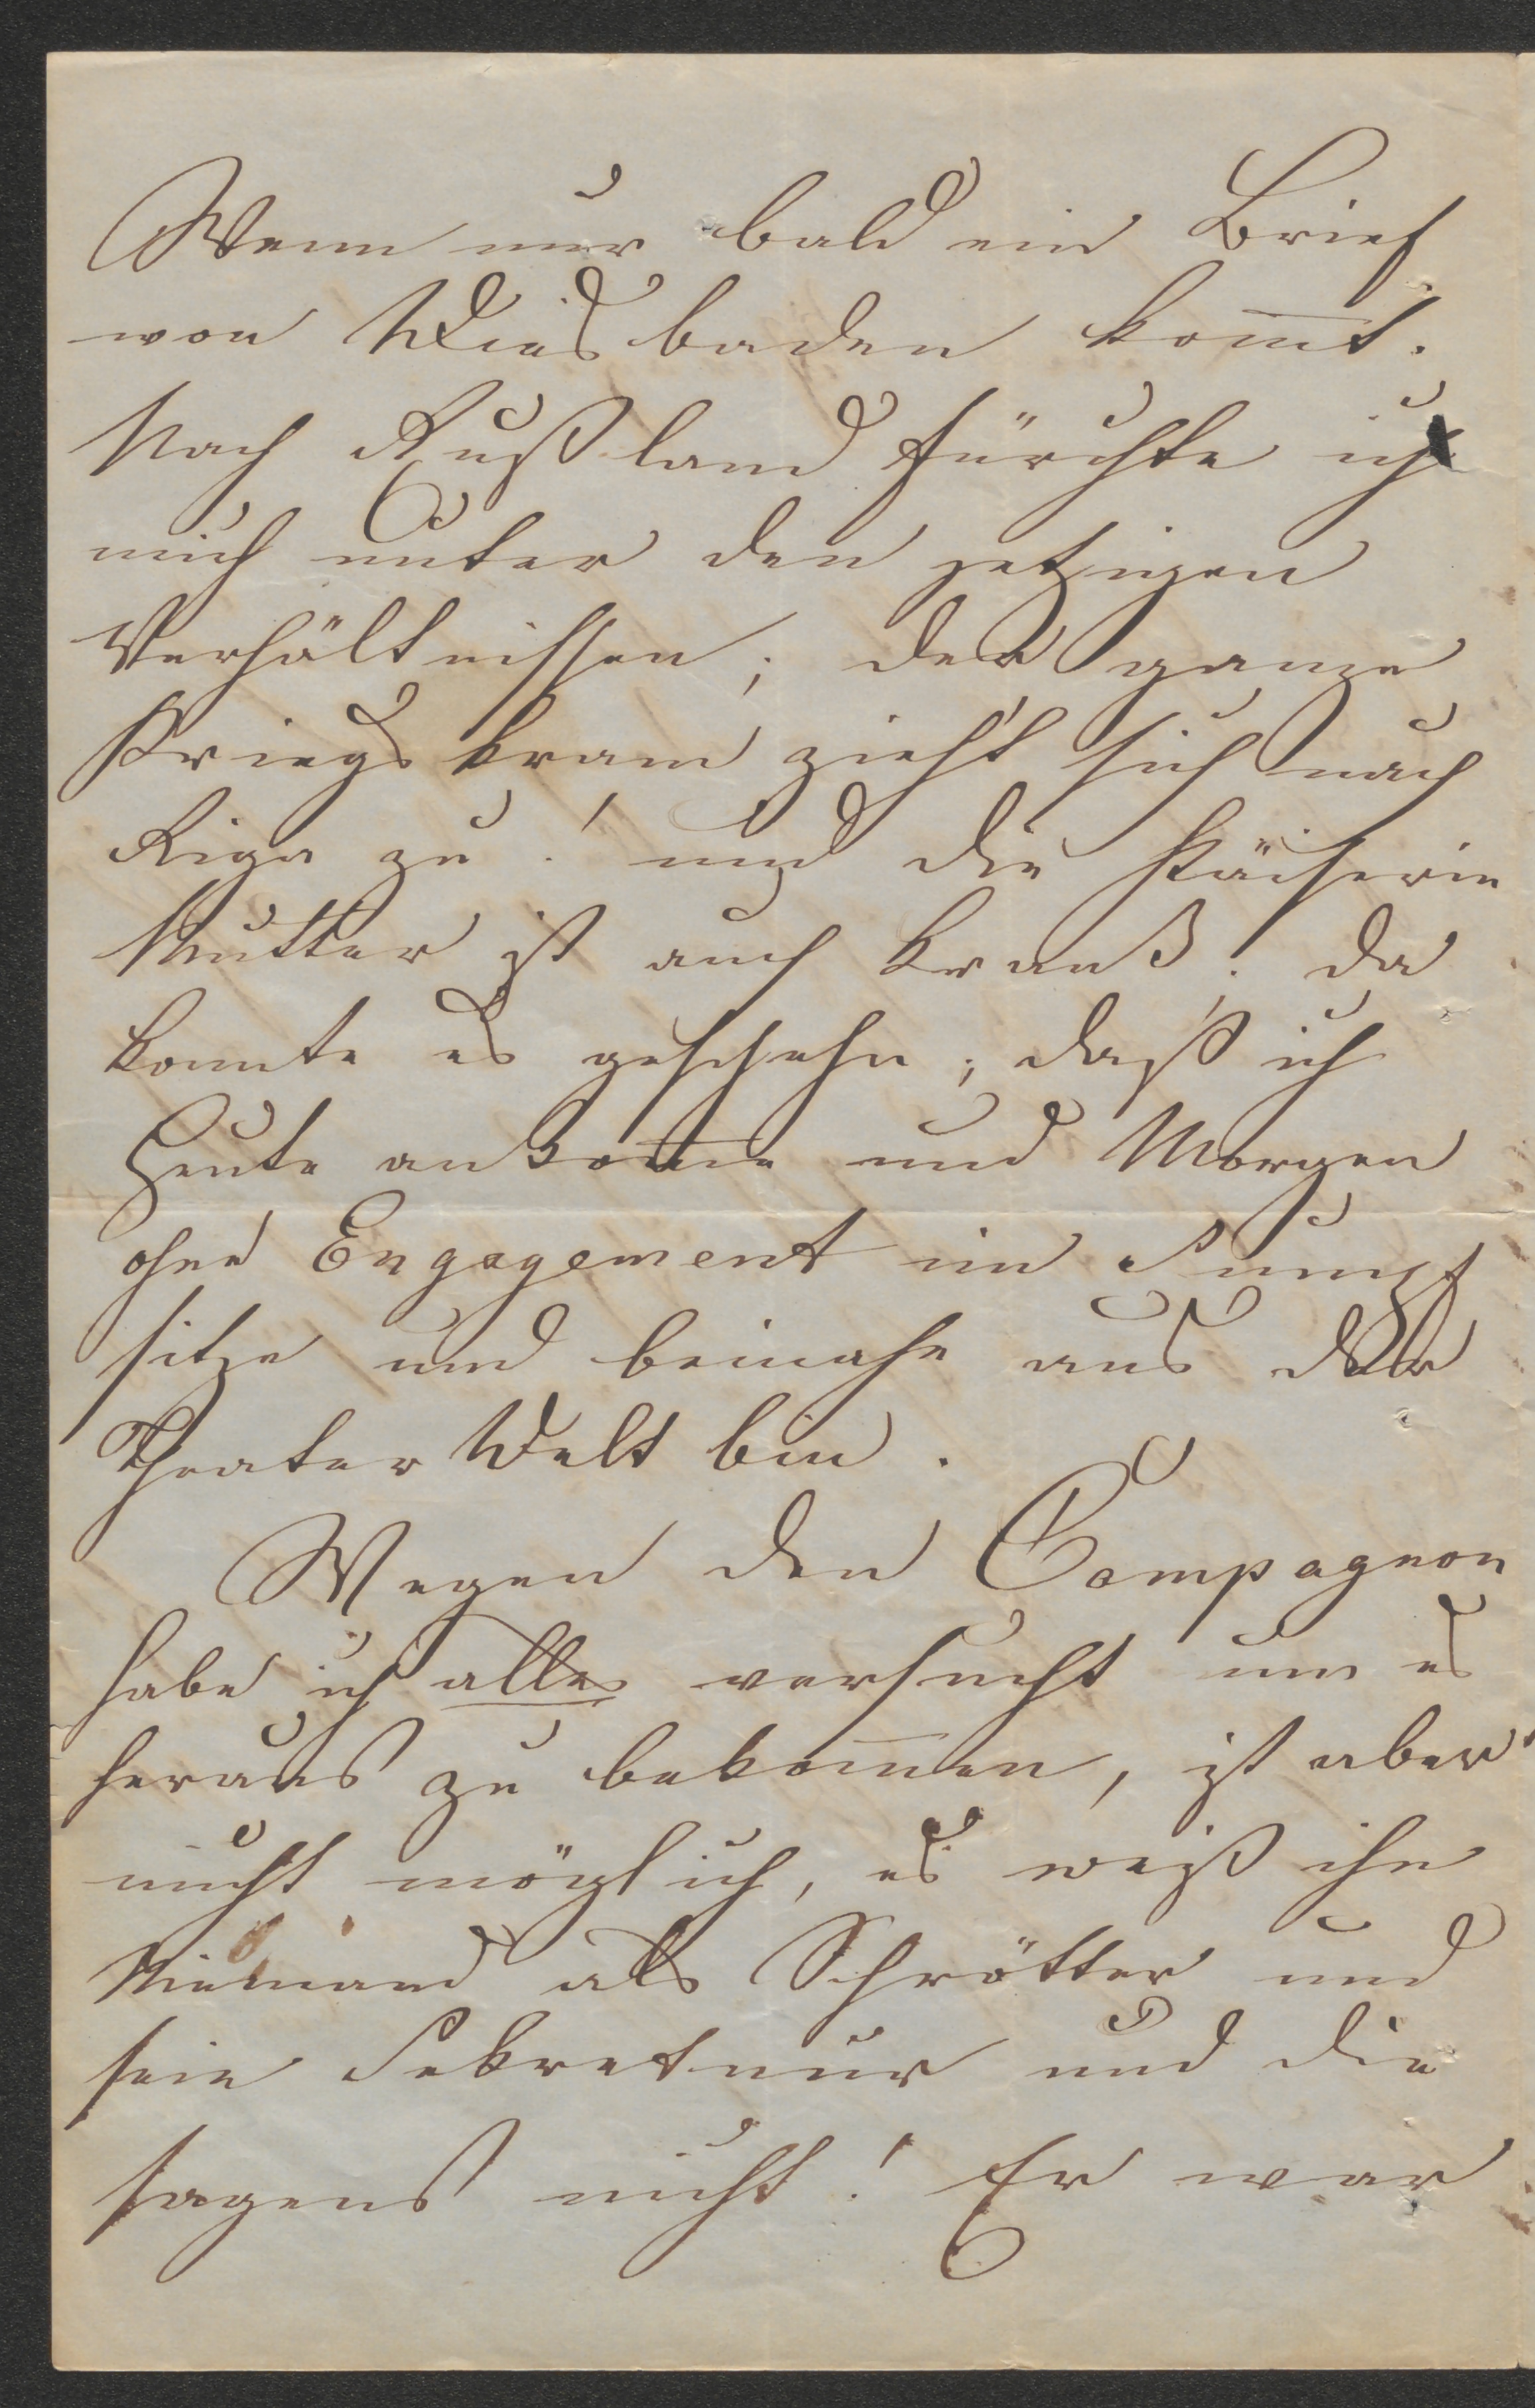 Wenn nur bald ein Brief
von Wiesbaden kom̅t.
Nach Rußland fürchte ich
mich unter den jetzigen
Verhältnissen; der ganze
Kriegskram zieht sich nach
Riga zu! und die Käiserin
Mutter ist auch krank! da
konnte es geschehn, daß ich
Heute ankom̅e und Morgen
ohne Engagement im Sumpf
sitze und beinahe aus der
Theater Welt bin.
Wegen den Compagnon
habe ich alles versucht um es
heraus zu bekom̅en, ist aber
nicht möglich, es weiß ihn
Niemand als Schrötter und
sein Sekretair und die
sagens nicht! Er war